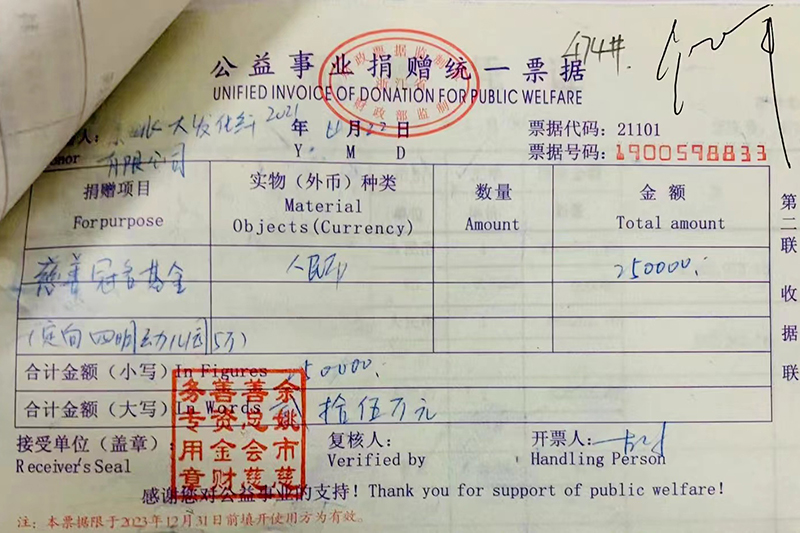 474#
公益事业捐赠统一票据
UNIFIED INVOICE OF DONATION FOR PUBLIC WELFARE
财政票据监制章
浙江省
财政部监制
人: 大发化纤 2021 年 4月22日
有限公司
onor Y. M D
票据代码: 21101
票据号码: 1900598833
捐赠项目 实物(外币)种类 数量 金额
For purpose Material Objects(Currency) Amount Total amount
慈善冠名基金 人民币 250000.
(定向四明幼儿园5万)
合计金额(小写) In Figures 250000.
合计金额(大写) In Words 贰拾伍万元
余姚市慈
善总会慈
善资金财
务专用章
接受单位(盖章) 复核人: 开票人:
Receiver's Seal Verified by Handling Person
感谢您对公益事业的支持! Thank you for support of public welfare!
注: 本票据限于2023年12月31日前填开使用方为有效。
第二联 收据联